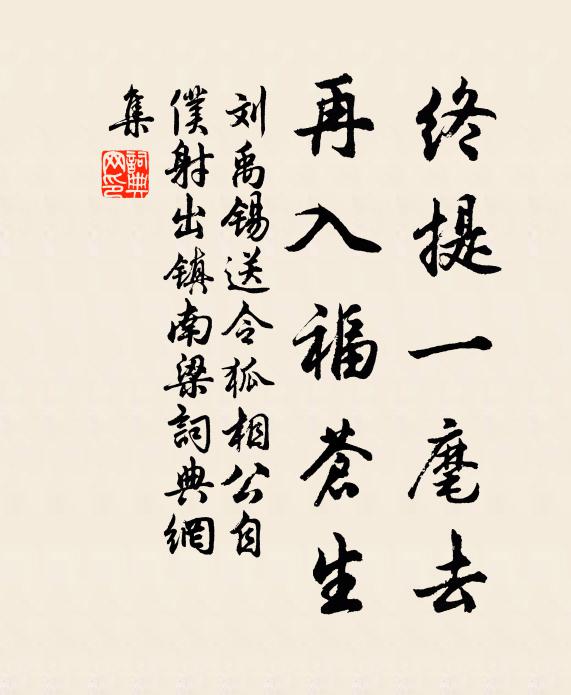 终提一麾去
再入福蒼生
刘禹锡送令狐相公自
僕射出镇南梁詞典網
集
詞典
网印